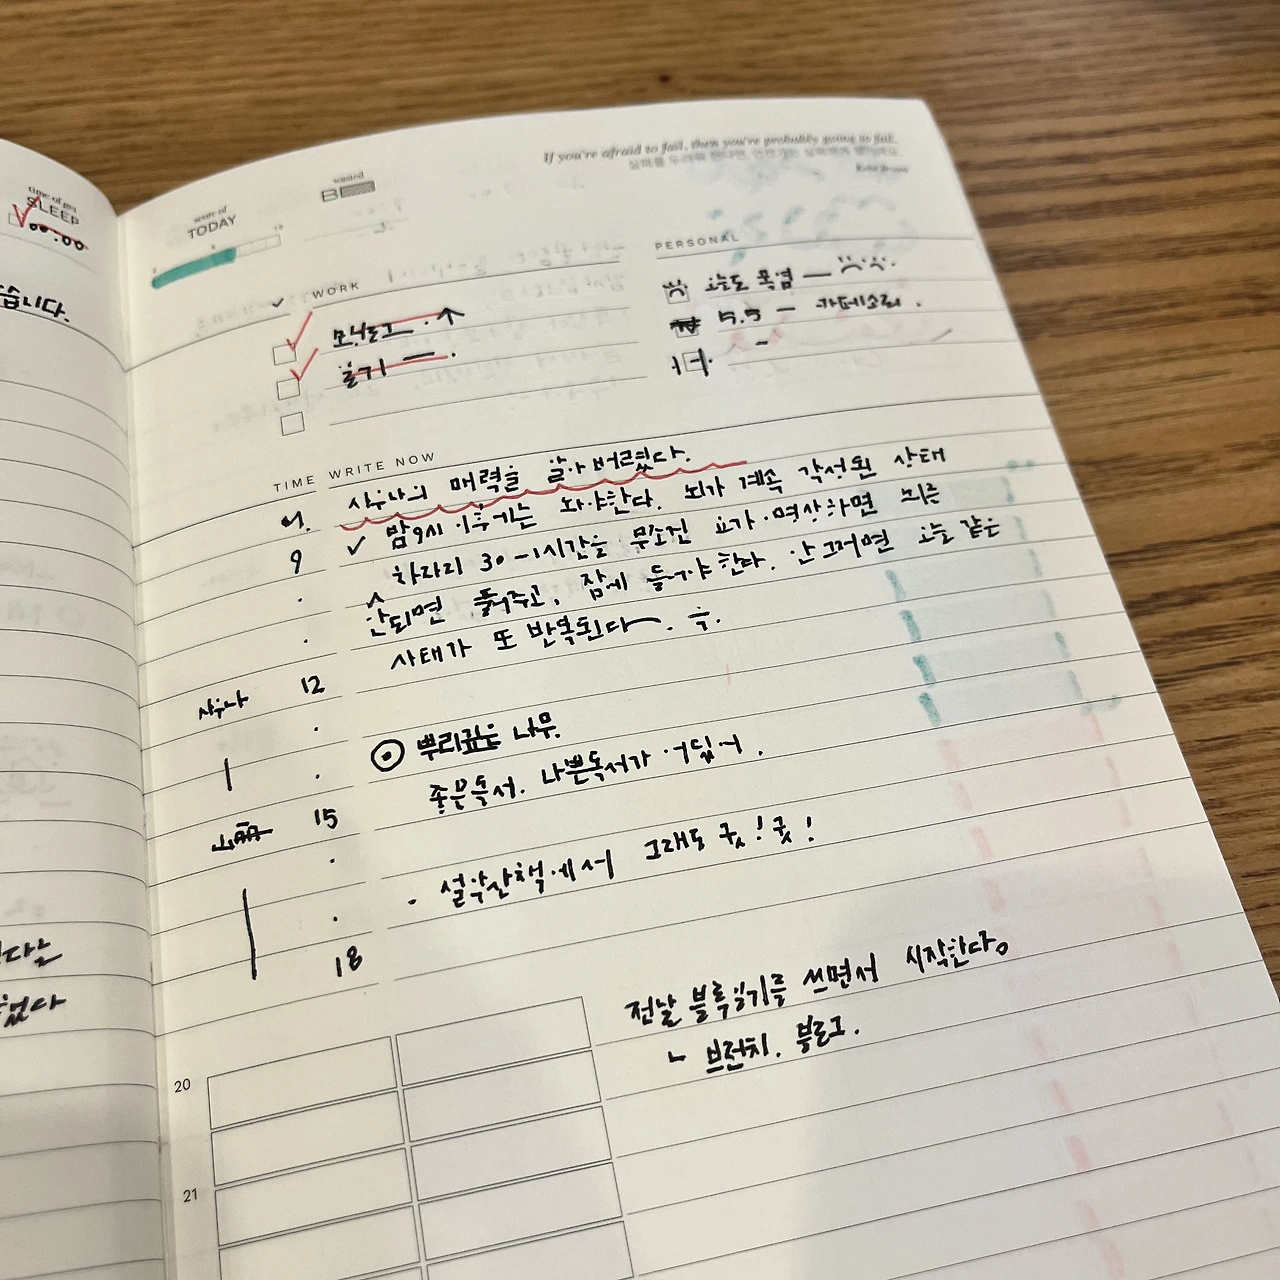 time of get
SLEEP
00:00
습니다.
score of
TODAY
If you're afraid to fail, then you're probably going to fail.
WORK
모닝로그 . ↑
일기 — .
PERSONAL
오늘도 폭염 —
5.5 —
TIME WRITE NOW
사우나의 매력을 알아버렸다.
9 ✓ 밤9시 이후기는 놔야한다. 뇌가 계속 각성된 상태
차라리 30-1시간을 무조건 요가·명상하면 뇌를
안되면 풀어주고, 잠에 들가야 한다. 안 끄면 오늘 같은
사태가 또 반복된다. 흑.
사우나 12
뿌리깊은 나무.
좋은독서. 나쁜독서가 어딨어.
15
· 설악산책에서 그래도 굿! 굿!
18
전날 블록일기를 쓰면서 시작한다.
ㄴ 브런치. 블로그.
20
21